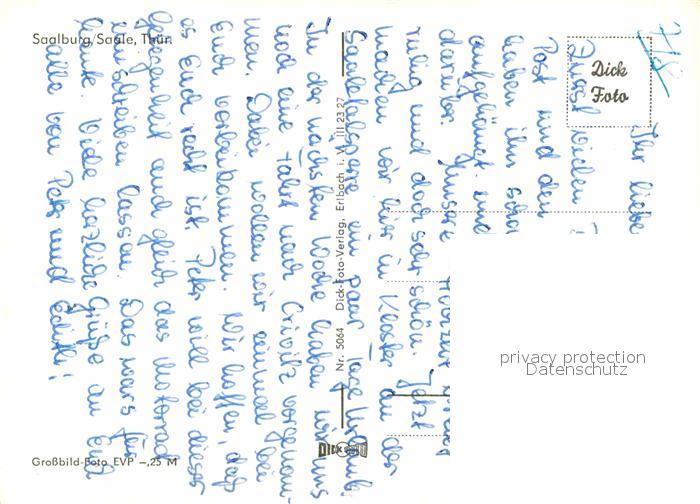 Saalburg/Saale, Thür.
Dick
Foto
Ihr liebe
Zuerst vielen
Post und den
haben ihn scho
aufgehängt und
darüber. Unsere Hochzeit
ruhig und doch sehr schön. Jetzt
machen wir hier in Kloster an der
Saaletalsperre ein paar Tage Urlaub.
In der nächsten Woche haben wir uns
noch eine Fahrt nach Crivitz vorgenom-
men. Dabei wollen wir einmal bei
Euch vorbeikommen. Wir hoffen, daß
es Euch recht ist. Peter will bei dieser
Gelegenheit auch gleich das Motorrad
umschreiben lassen. Das wars für
heute. Viele herzliche Grüße an Euch
alle von Peter und Edith!
Nr. 5064 Dick-Foto-Verlag, Erlbach i. V. III 23 27
DICK
privacy protection
Datenschutz
Großbild-Foto EVP –,25 M